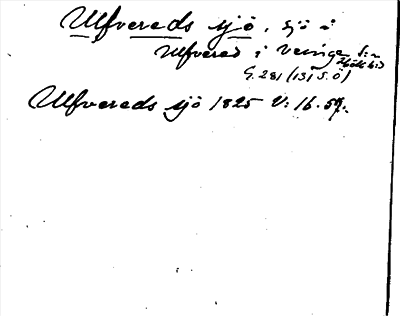 Ulfvereds sjö, sjö i
Ulfvered i Veinge s:n
Höks hd
G. 281 (1315.Ö)
Ulfvereds sjö 1825 V: 16. 57.